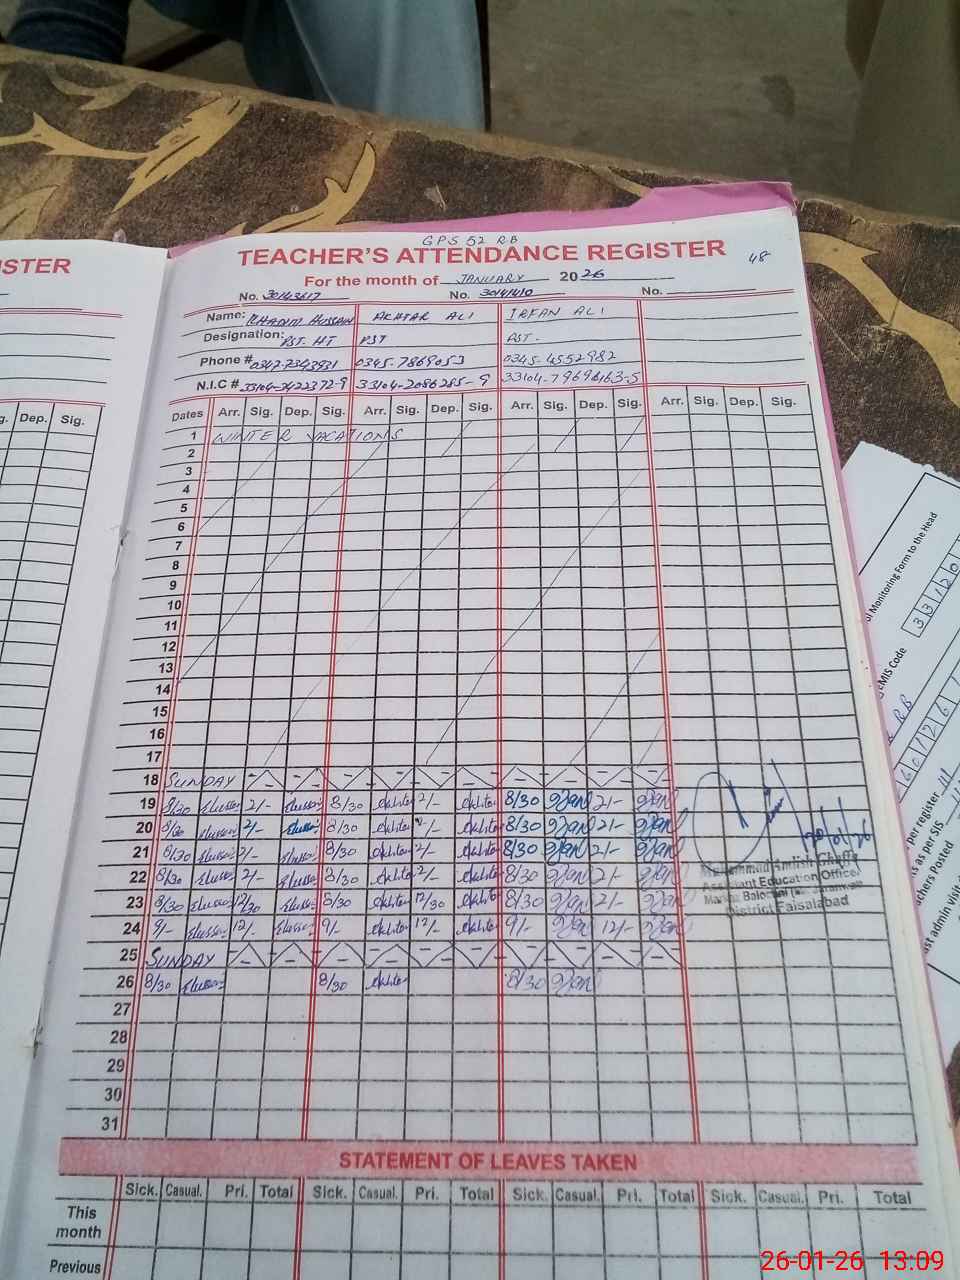 GPS 52 RB
ISTER
TEACHER'S ATTENDANCE REGISTER 48
For the month of JANUARY 2026
No. 30143617 No. 30141410 No.
Name: HUSSAIN AKHTAR ALI IRFAN ALI
Designation: PST. HT PST PST.
Phone # 0347-7343931 0345.7869053 0345-4552982
N.I.C # 33104-3422372-9 33104-2086285-9 33104-79696163-5
Dep. Sig.
Dates Arr. Sig. Dep. Sig. Arr. Sig. Dep. Sig. Arr. Sig. Dep. Sig. Arr. Sig. Dep. Sig.
1 WINTER VACATIONS
2
3
4
5
6
7
8
9
10
11
12
13
14
15
16
17
18 SUNDAY
19 8/30 2/- 8/30 2/- 8/30 2/-
20 8/30 2/- 8/30 2/- 8/30 2/-
21 8/30 2/- 8/30 2/- 8/30 2/-
22 8/30 2/- 8/30 2/- 8/30 2/-
23 8/30 12/30 8/30 12/30 8/30 2/-
24 9/- 12/- 9/- 12/- 9/- 12/-
25 SUNDAY
26 8/30 8/30 8/30
27
28
29
30
31
Assistant Education Officer
District Faisalabad
STATEMENT OF LEAVES TAKEN
Sick. Casual. Pri. Total Sick. Casual. Pri. Total Sick. Casual. Pri. Total Sick. Casual. Pri. Total
This
month
Previous
Monitoring Form to the Head
33120
EMIS Code
RB
per register
s as per SIS
achers Posted
26-01-26 13.09